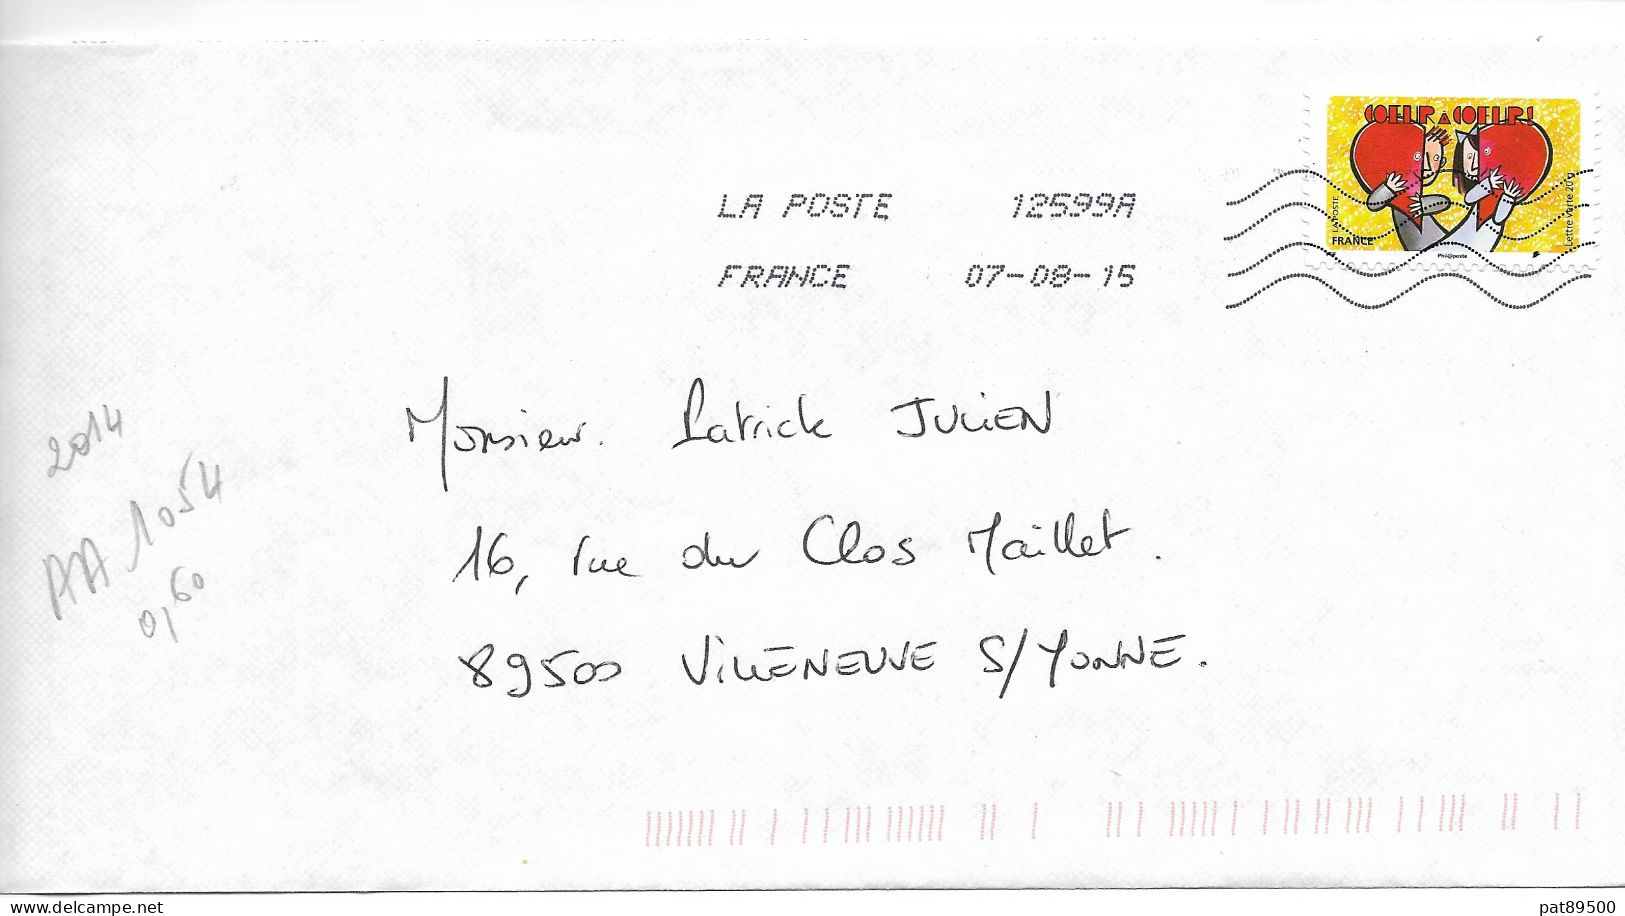 COEUR À COEUR!
LA POSTE
FRANCE
Lettre verte 20g
Phil@poste
LA POSTE 12599A
FRANCE 07-08-15
Monsieur. Patrick JULIEN
16, rue du Clos Maillet.
89500 VILLENEUVE S/YONNE.
2014
AA 1054
0,60
www.delcampe.net
pat89500